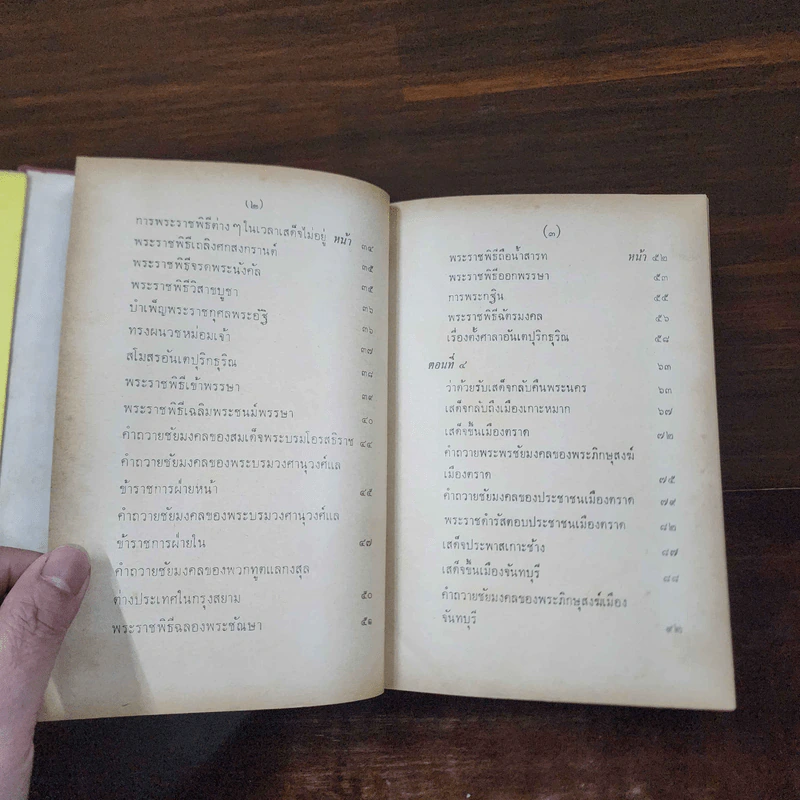 (๒)
การพระราชพิธีต่าง ๆ ในเวลาเสด็จไม่อยู่ หน้า ๓๔
พระราชพิธีเถลิงศกสงกรานต์
พระราชพิธีจรดพระนังคัล ๓๕
พระราชพิธีวิสาขบูชา ๓๕
บำเพ็ญพระราชกุศลพระอัฐิ ๓๖
ทรงผนวชหม่อมเจ้า ๓๖
สโมสรอันเตปุริกธุริณ ๓๗
พระราชพิธีเข้าพรรษา ๓๘
พระราชพิธีเฉลิมพระชนม์พรรษา ๓๙
คำถวายชัยมงคลของสมเด็จพระบรมโอรสธิราช ๔๔
๔๐
คำถวายชัยมงคลของพระบรมวงศานุวงศ์แล
ข้าราชการฝ่ายหน้า ๔๕
คำถวายชัยมงคลของพระบรมวงศานุวงศ์แล
ข้าราชการฝ่ายใน ๔๗
คำถวายชัยมงคลของพวกทูตแลกงสุล
ต่างประเทศในกรุงสยาม ๕๐
พระราชพิธีฉลองพระชัณษา ๕๑
(๓)
พระราชพิธีถือน้ำสารท หน้า ๕๒
พระราชพิธีออกพรรษา ๕๓
การพระกฐิน ๕๕
พระราชพิธีฉัตรมงคล ๕๖
เรื่องตั้งศาลาอันเตปุริกธุริณ ๕๘
ตอนที่ ๔ ๖๓
ว่าด้วยรับเสด็จกลับคืนพระนคร ๖๓
เสด็จกลับถึงเมืองเกาะหมาก ๖๗
เสด็จขึ้นเมืองตราด ๗๒
คำถวายพระพรชัยมงคลของพระภิกษุสงฆ์
เมืองตราด ๗๕
คำถวายชัยมงคลของประชาชนเมืองตราด ๗๙
พระราชดำรัสตอบประชาชนเมืองตราด ๘๒
เสด็จประพาสเกาะช้าง ๘๗
เสด็จขึ้นเมืองจันทบุรี ๘๘
คำถวายชัยมงคลของพระภิกษุสงฆ์เมือง
จันทบุรี ๙๒